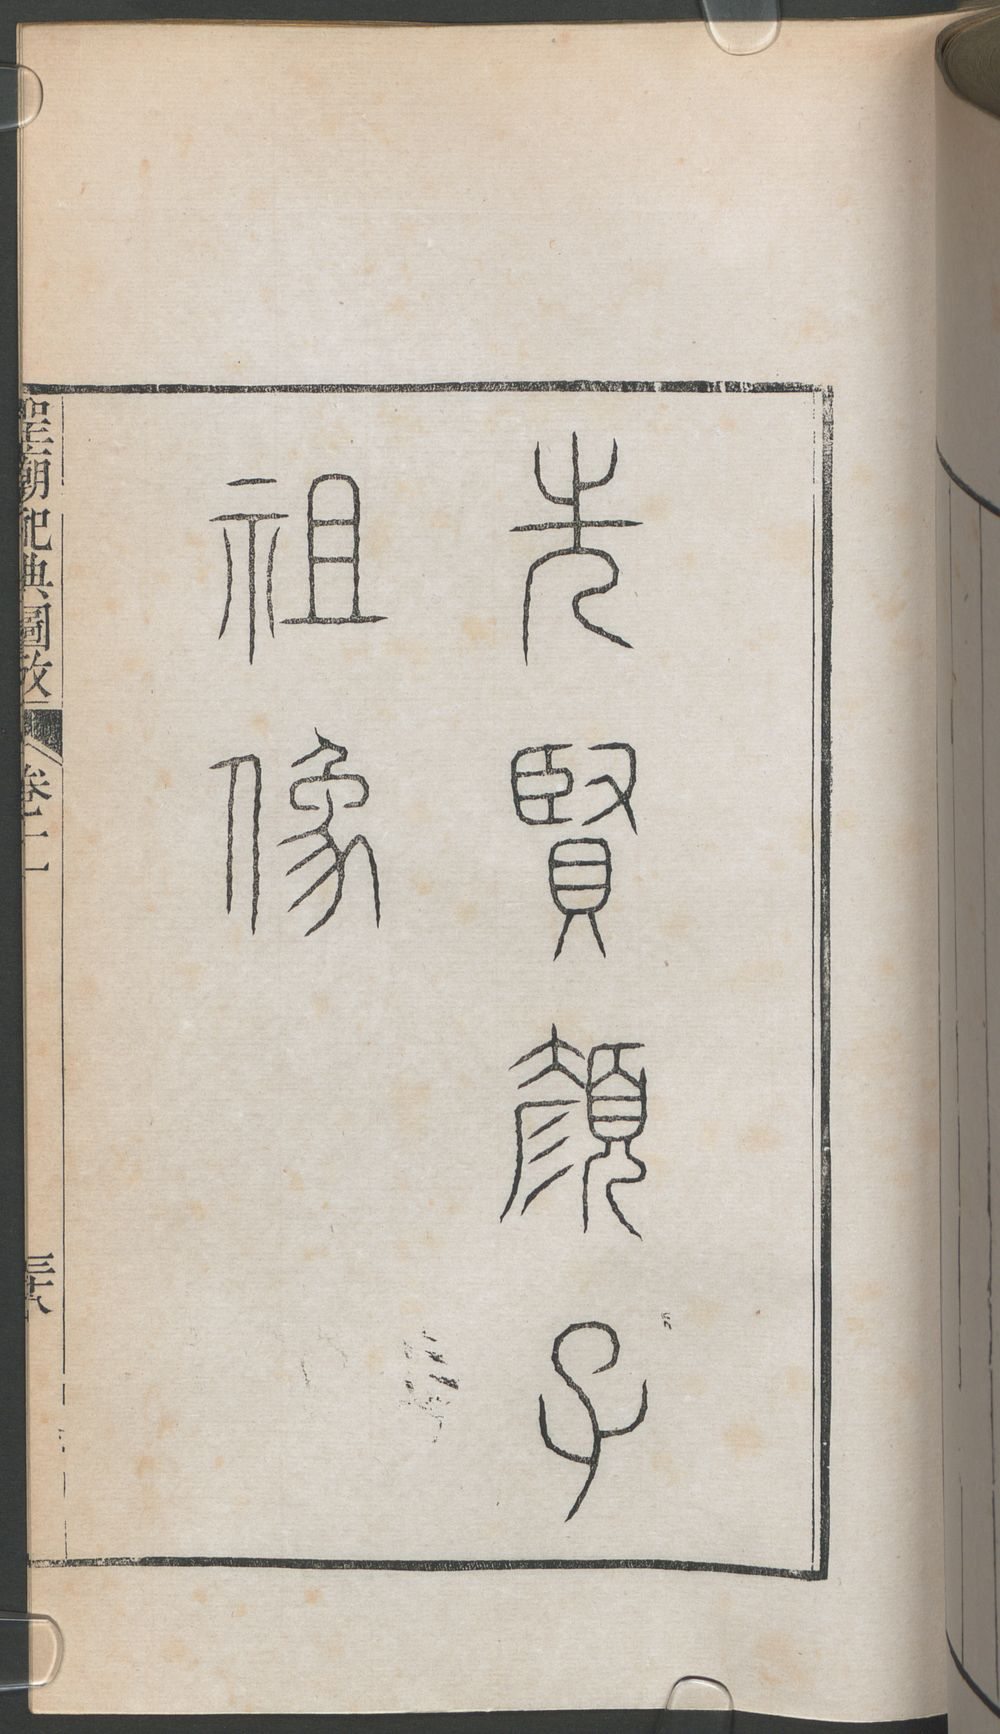 先賢顏子
祖像
聖朝祀典圖攷
卷二
三十八